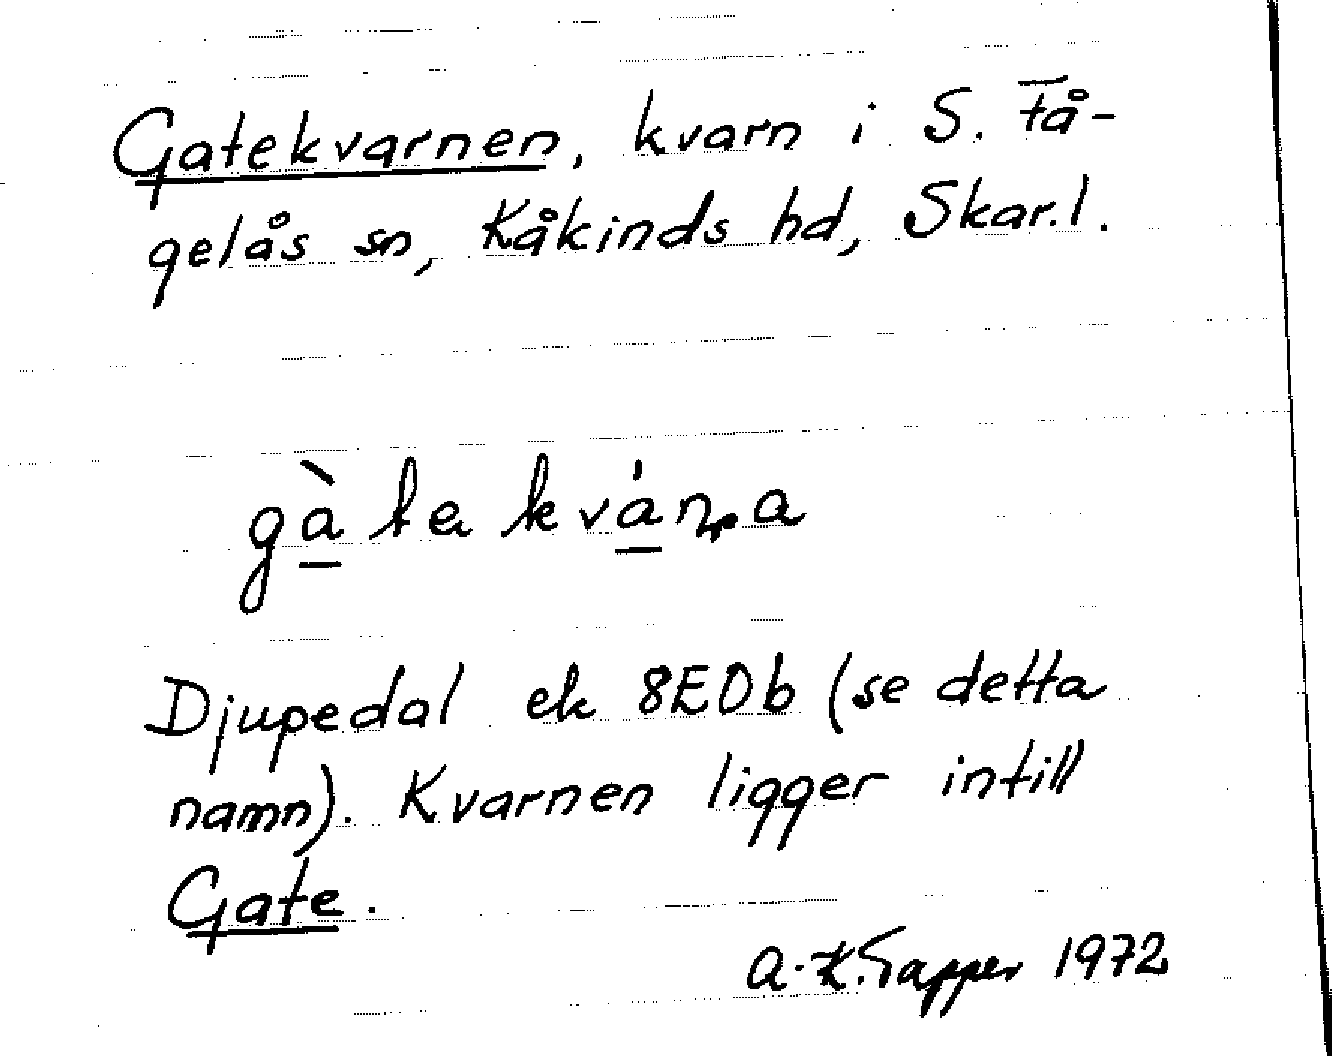 Gatekvarnen, kvarn i S. Få-
gelås sn, Kåkinds hd, Skar.l.
gàtekvánɳa
Djupedal ek 8E0b (se detta
namn). Kvarnen ligger intill
Gate.
A.-K. Tapper 1972